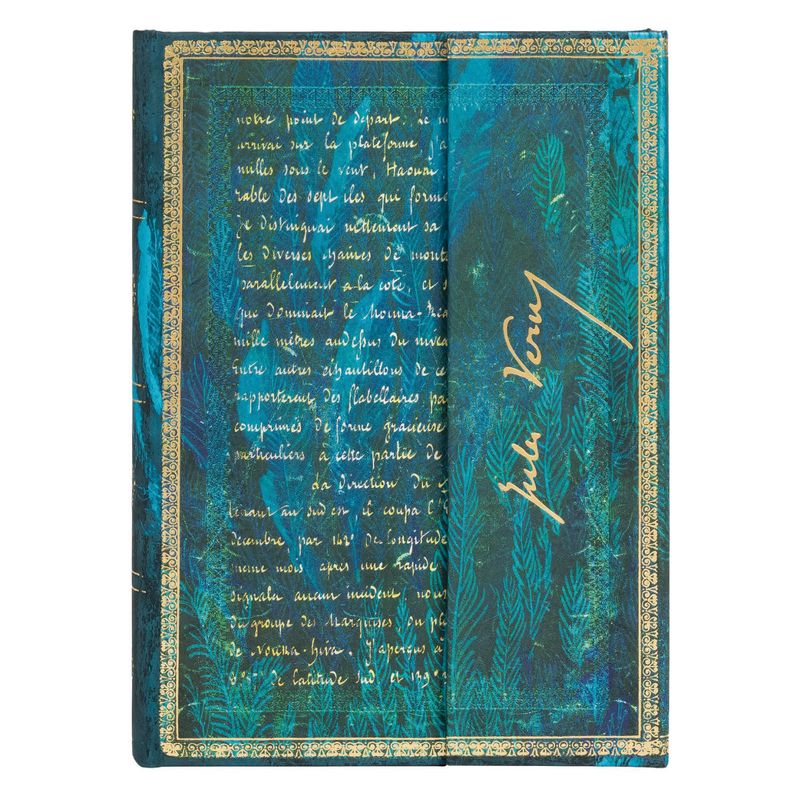 notre point de départ. Le m
arrivai sur la plateforme, j'a
milles sous le vent, Haouaï
rable des sept iles qui forme
je distinguai nettement sa
les diverses chaines de monta
parallelement a la coté, et s
que dominait le Mouna-Rea
mille mètres au dessus du nivea
Entre autres échantillons de ce
rapporterent des flabellaires pa
comprimés de forme gracieuse
particuliers à cette partie de
La direction du
tenant au sud est, il coupa l'E
decembre, par 142° de longitude
meme mois après une rapide
signala aucun incident, nous
du groupe des Marquises. Du pl
de Nouka-hiva. J'aperçus à
de latitude sud et 139°
Jules Verne